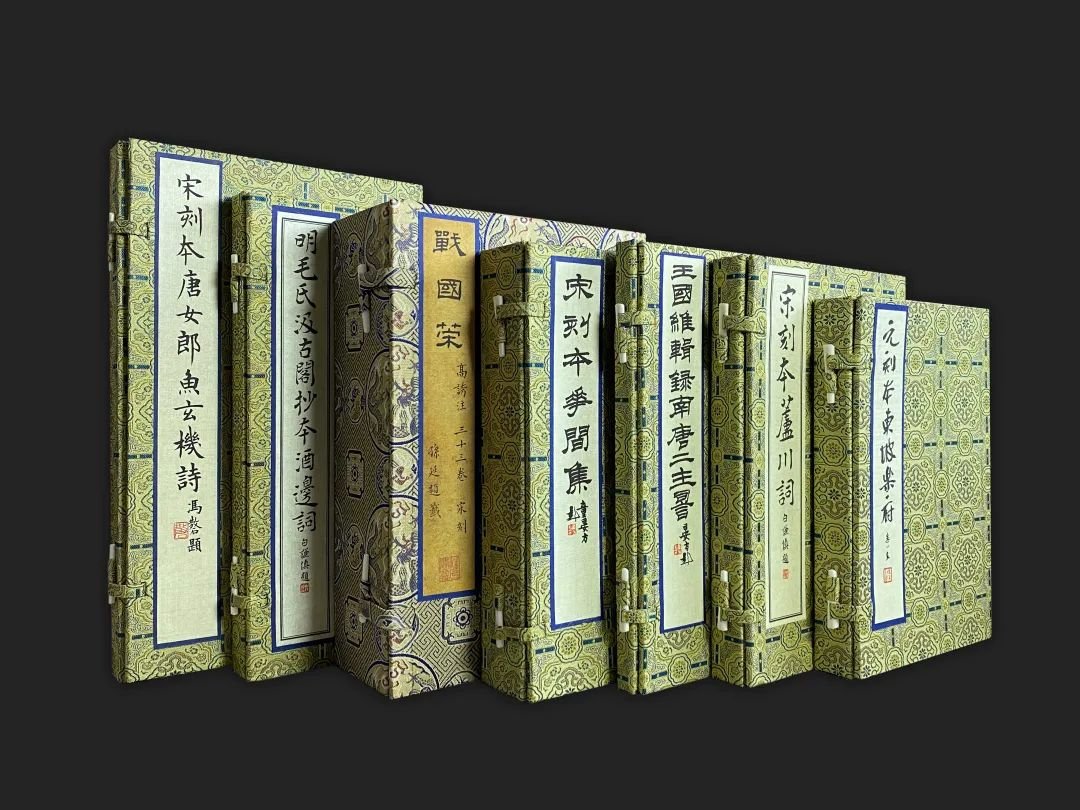 宋刻本唐女郎魚玄機詩
馮磬題
明毛氏汲古閣抄本酒邊詞
白謙慎題
戰國策
高誘注 三十三卷 宋刻
宋刻本花間集
王國維輯録南唐二主詞
宋刻本蘆川詞
白謙慎題
元刻本東坡樂府